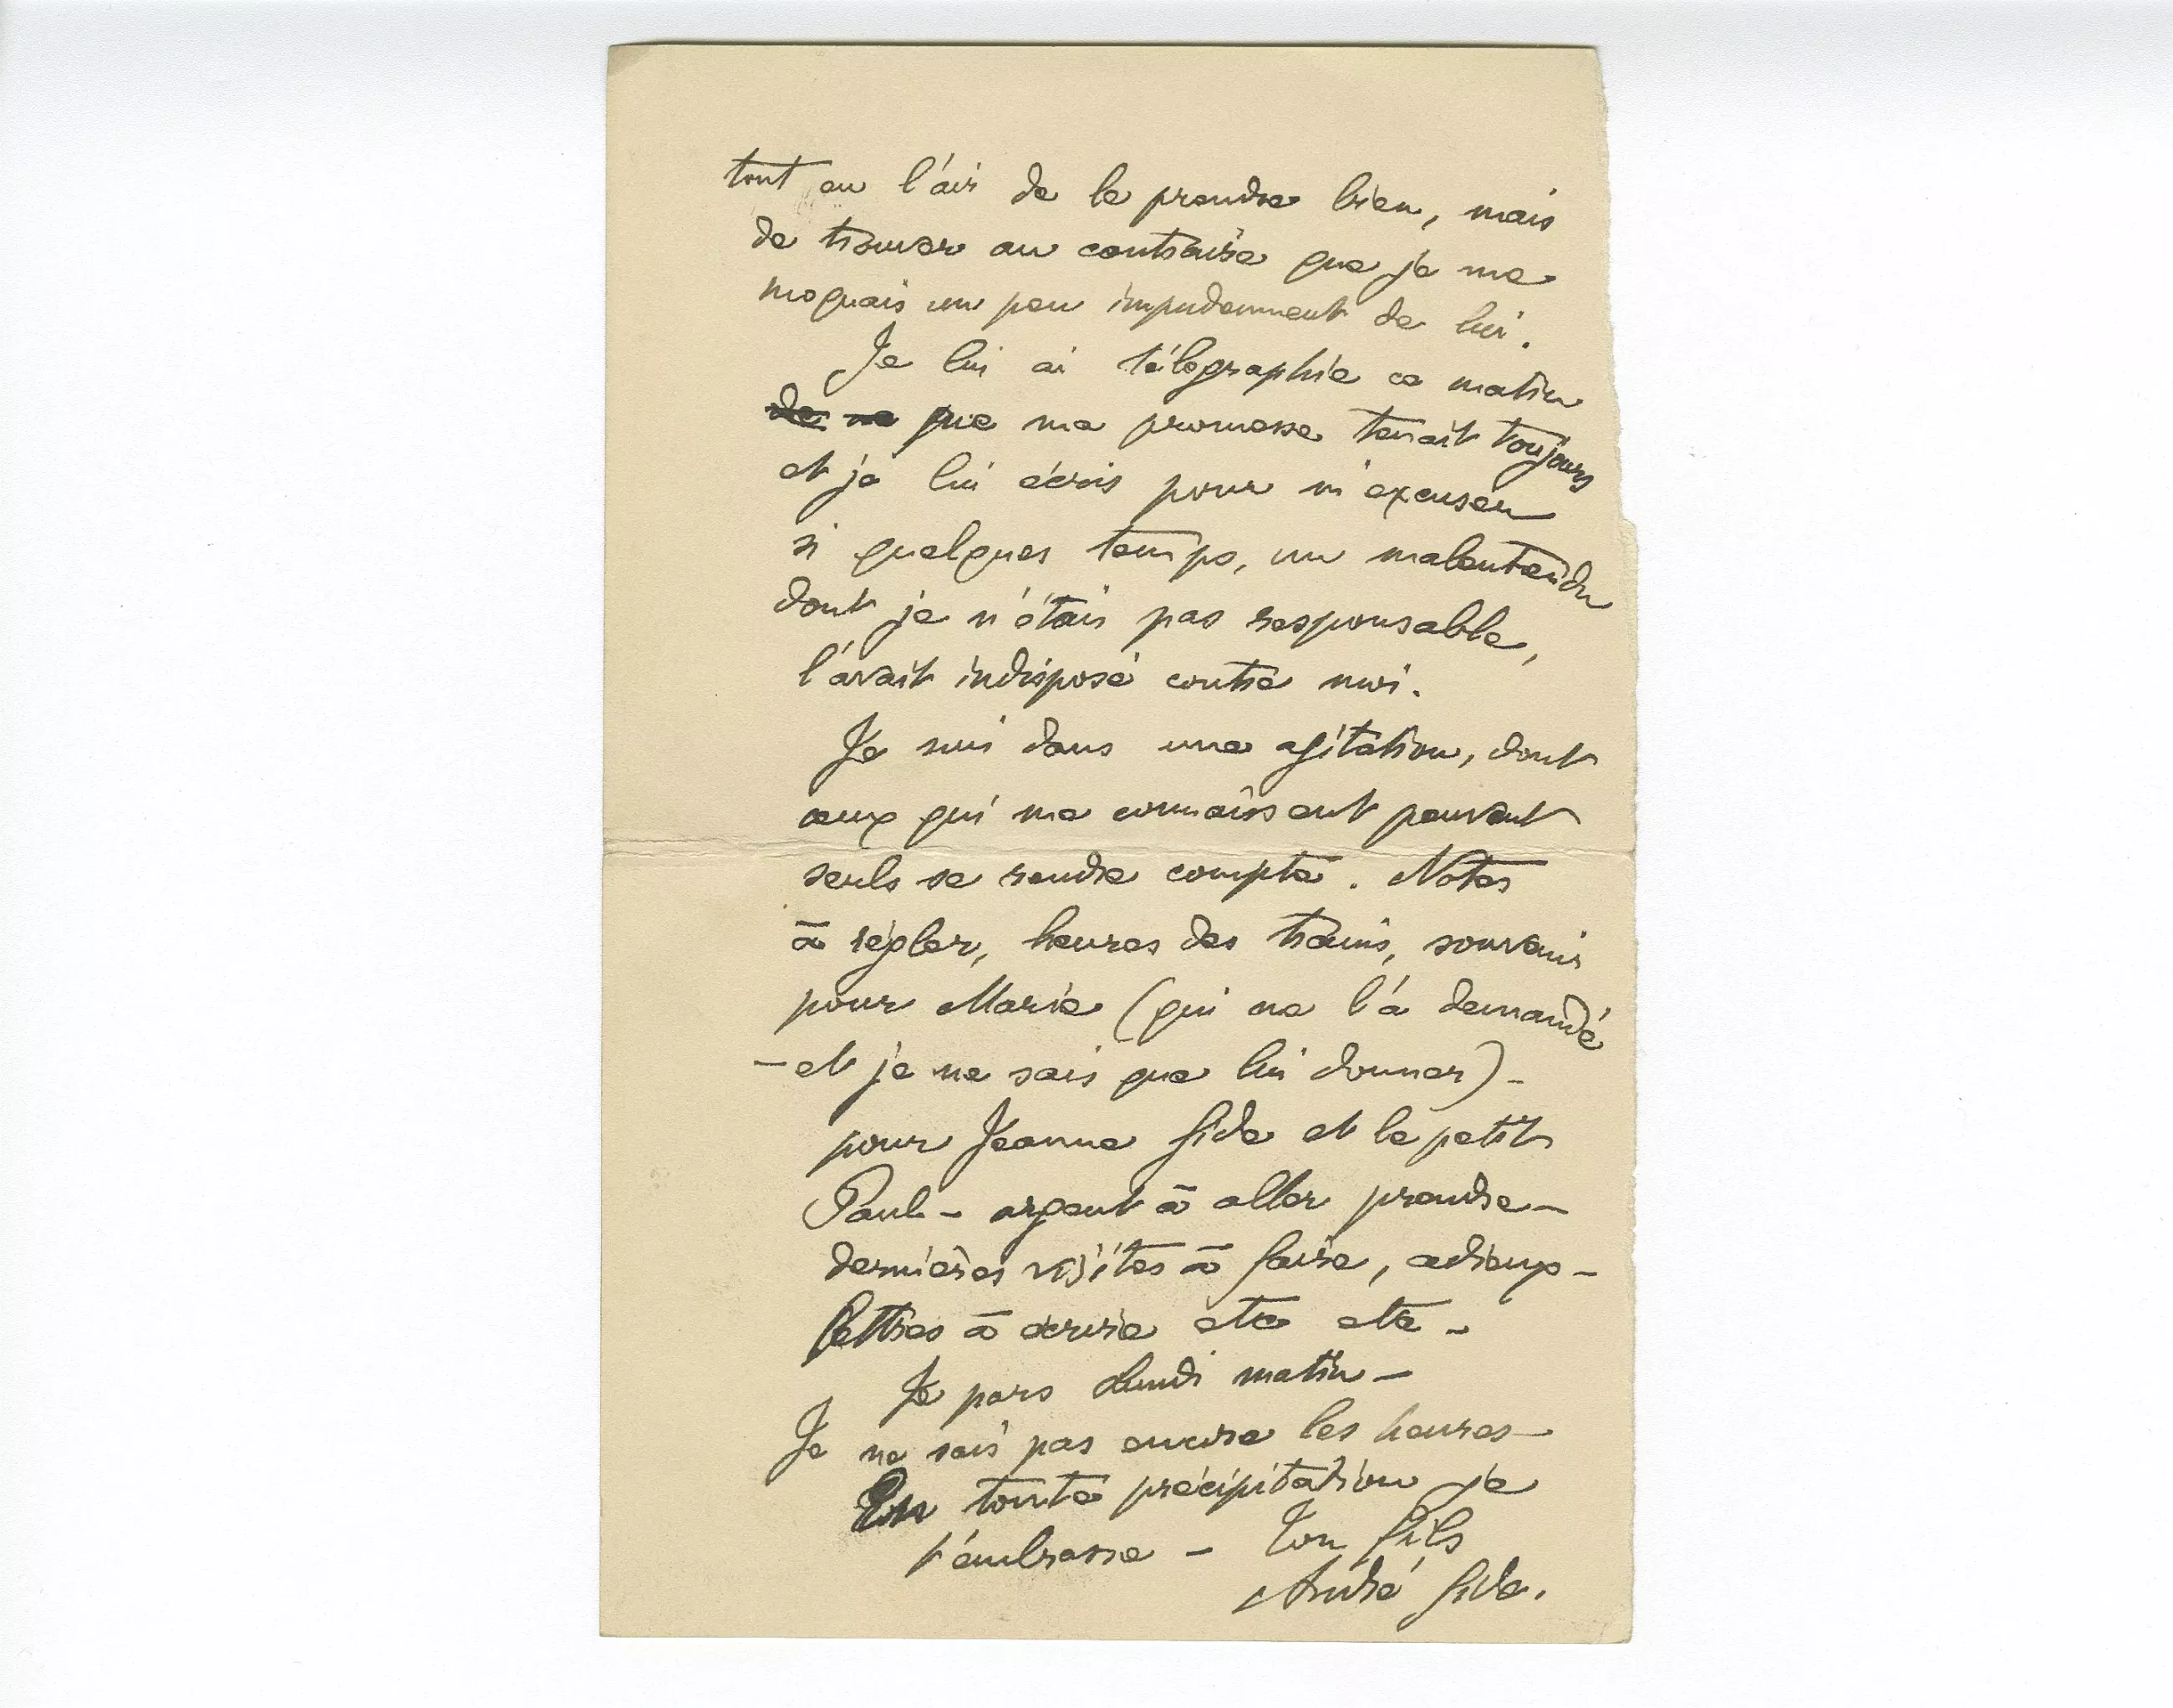 tout eu l'air de le prendre bien, mais
de trouver au contraire que je me
moquais un peu impudemment de lui.
Je lui ai télégraphié ce matin
de ne que ma promesse tenait toujours
et je lui écris pour m'excuser
si quelques temps, un malentendu
dont je n'étais pas responsable,
l'avait indisposé contre moi.
Je suis dans une agitation, dont
ceux qui me connaissent peuvent
seuls se rendre compte. Notes
à régler, heures des trains, souvenir
pour Marie (qui me l'a demandé
— et je ne sais que lui donner) —
pour Jeanne Gide et le petit
Paul — argent à aller prendre —
dernières visites à faire, adieux —
lettres à écrire etc etc —
Je pars Lundi matin —
Je ne sais pas encore les heures —
En toute précipitation je
t'embrasse — Ton fils
André Gide.